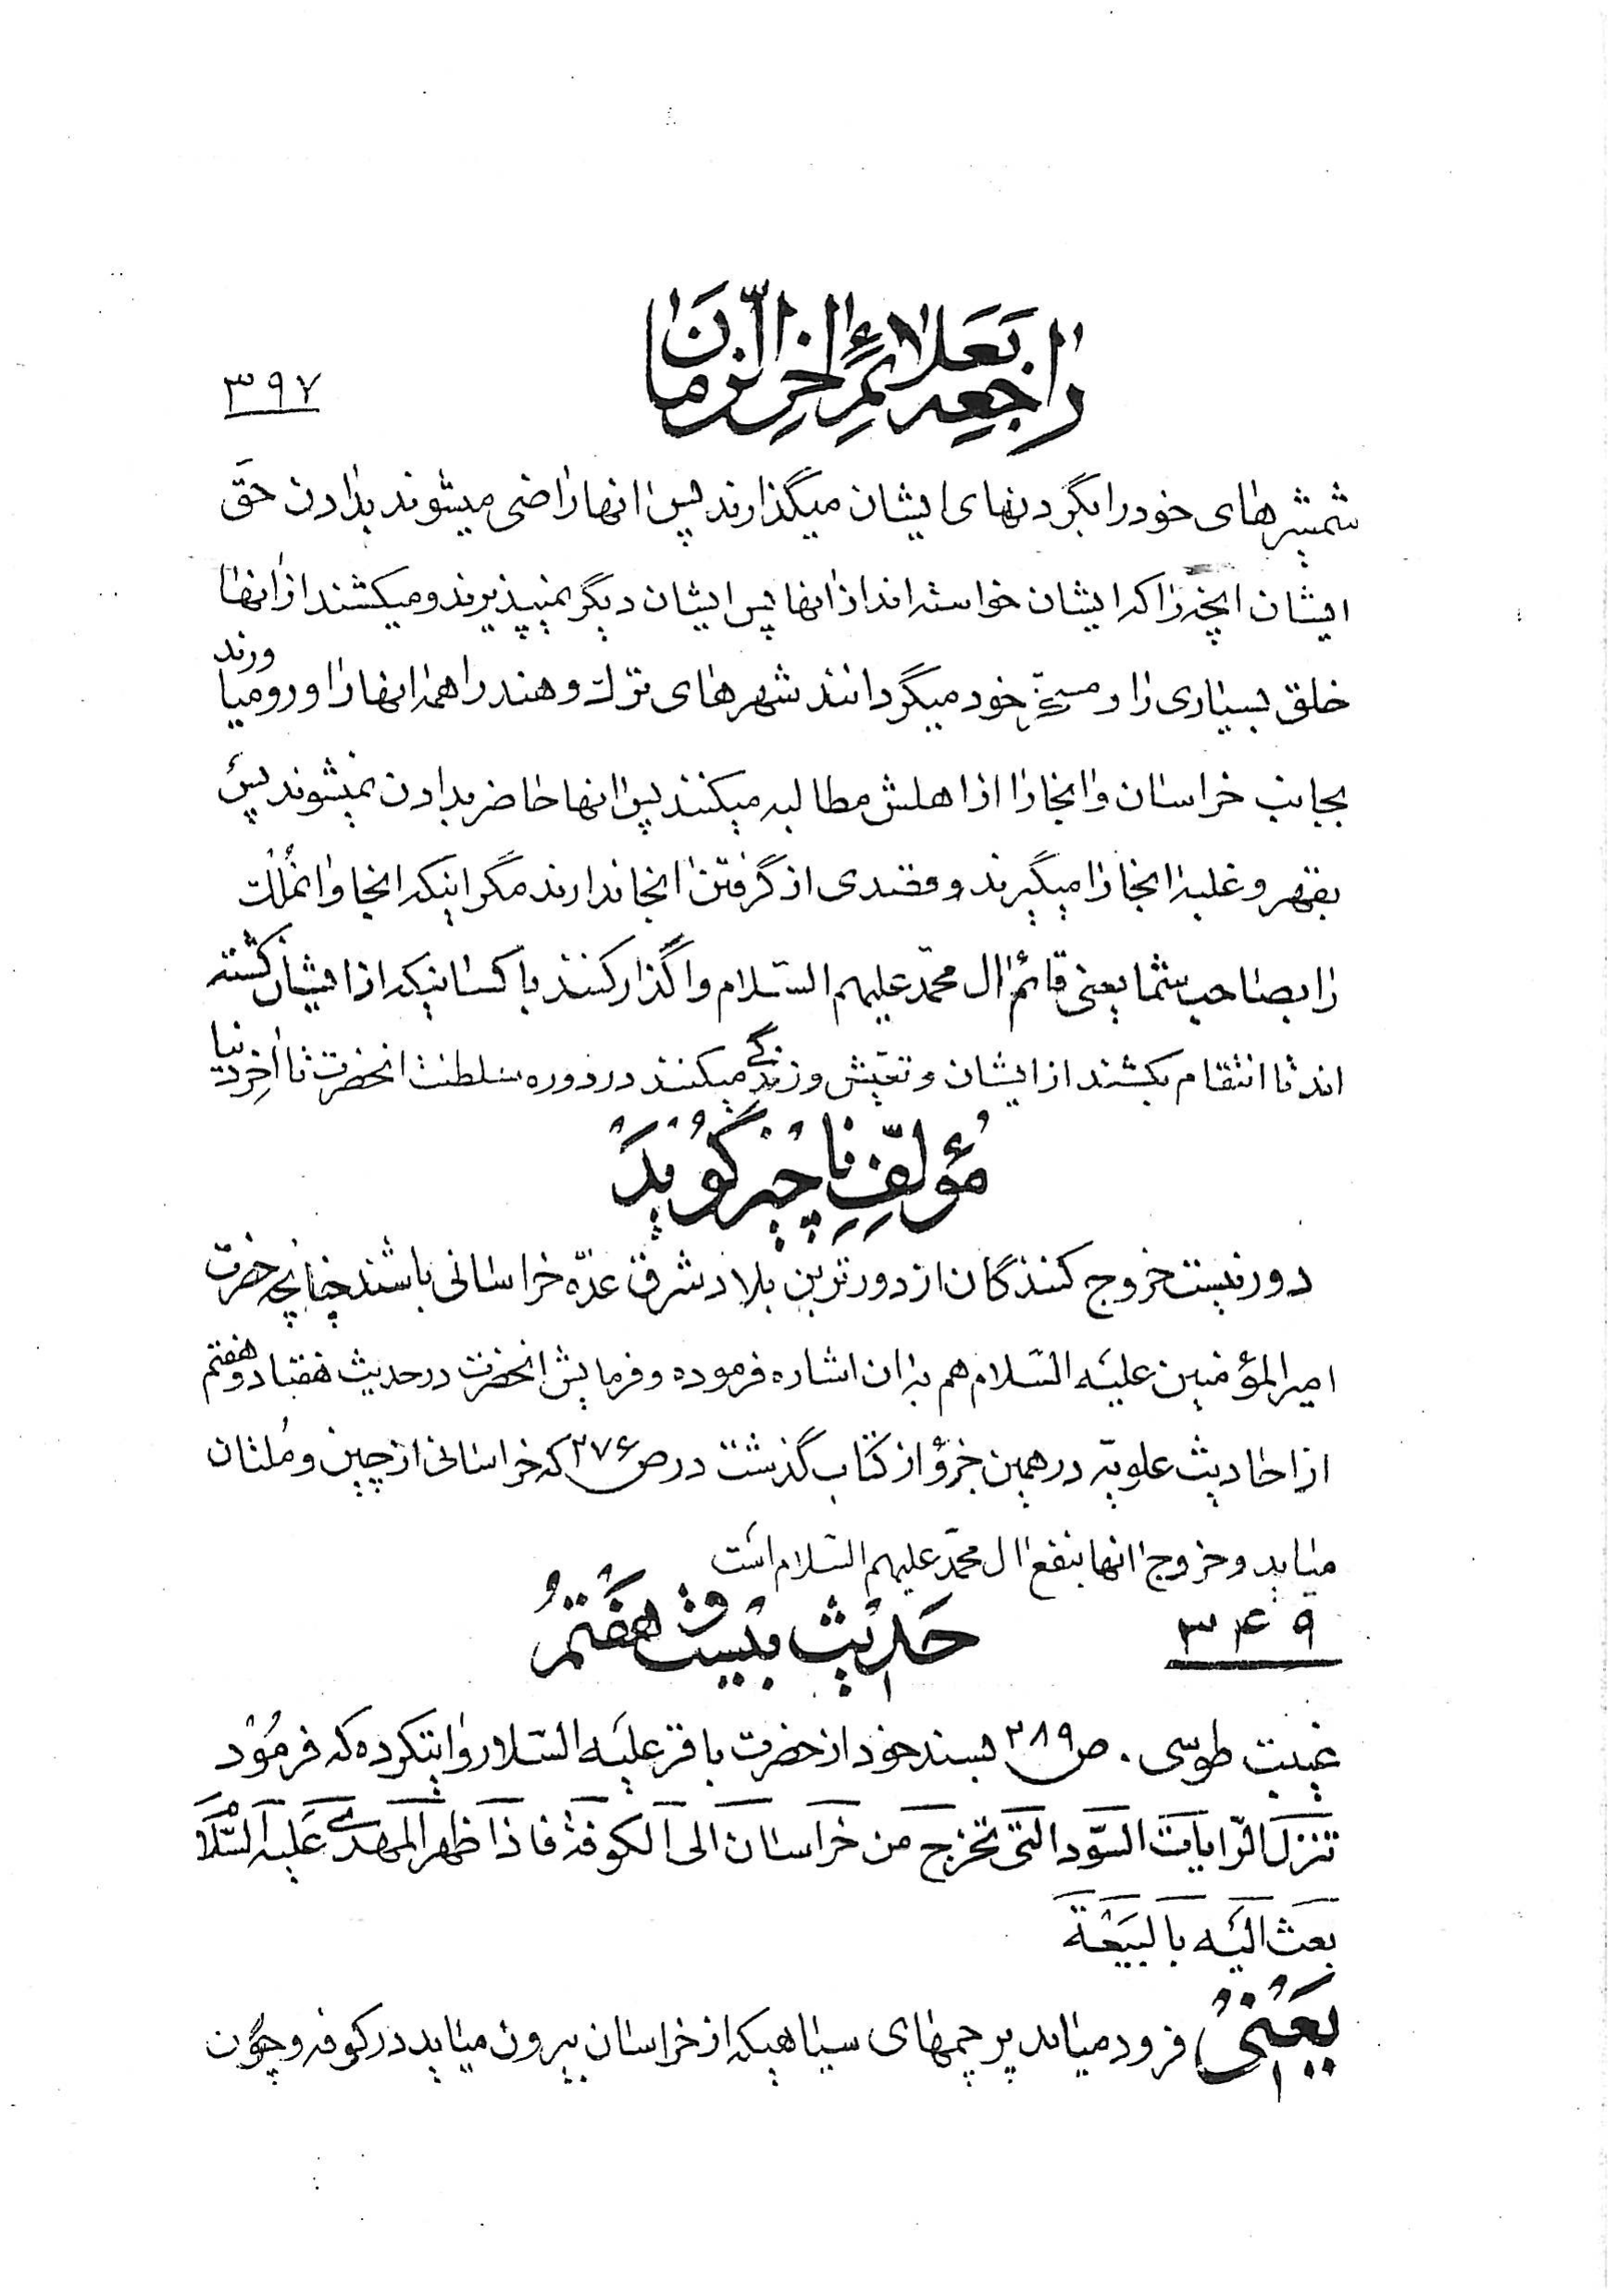 راجعه بعلائم آخر الزمان
۳۹۷
شمشیرهای خود را بگردنهای ایشان میگذارند پس انها راضی میشوند بدادن حق
ایشان انچه را که ایشان خواسته اند از انها پس ایشان دیگر نمیپذیرند و میکشند از انها
خلق بسیاری را و مسخّر خود میگردانند شهرهای ترک و هند را همه انها را و رو میاورند
بجانب خراسان و انجا را از اهلش مطالبه میکنند پس انها حاضر بدادن نمیشوند پس
بقهر و غلبه انجا را میگیرند و قصدی از گرفتن انجا ندارند مگر اینکه انجا و انملک
را بصاحب شما یعنی قائم ال محمّد علیهم السّلام واگذار کنند با کسانیکه از ایشان کشته
اند تا انتقام بکشند از ایشان و تعیّش و زندگی میکنند در دوره سلطنت انحضرت تا اخر دنیا
مؤلّف ناچیز گوید
دور نیست خروج کنندگان از دورترین بلاد شرق عدّه خراسانی باشند چنانچه حضرت
امیرالمؤمنین علیه السّلام هم بدان اشاره فرموده و فرمایش انحضرت در حدیث هفتاد و هفتم
از احادیث علویّه در همین جزؤ از کتاب گذشت در ص ۲۷۶ که خراسانی از چین و مُلتان
میاید و خروج انها بنفع ال محمّد علیهم السّلام است
۳۴۹ حَدیث بیست و هفتم
غیبت طوسی . ص ۲۸۹ بسند خود از حضرت باقر علیه السّلام روایتکرده که فرمُود
تنزل الرّایات السّود التی تخرج من خراسان الی الکوفة فاذا ظهر المهدی علیه السّلام
بعث الیه بالبیعة
یَعنی فرود میاید پرچمهای سیاهیکه از خراسان بیرون میاید در کوفه و چون